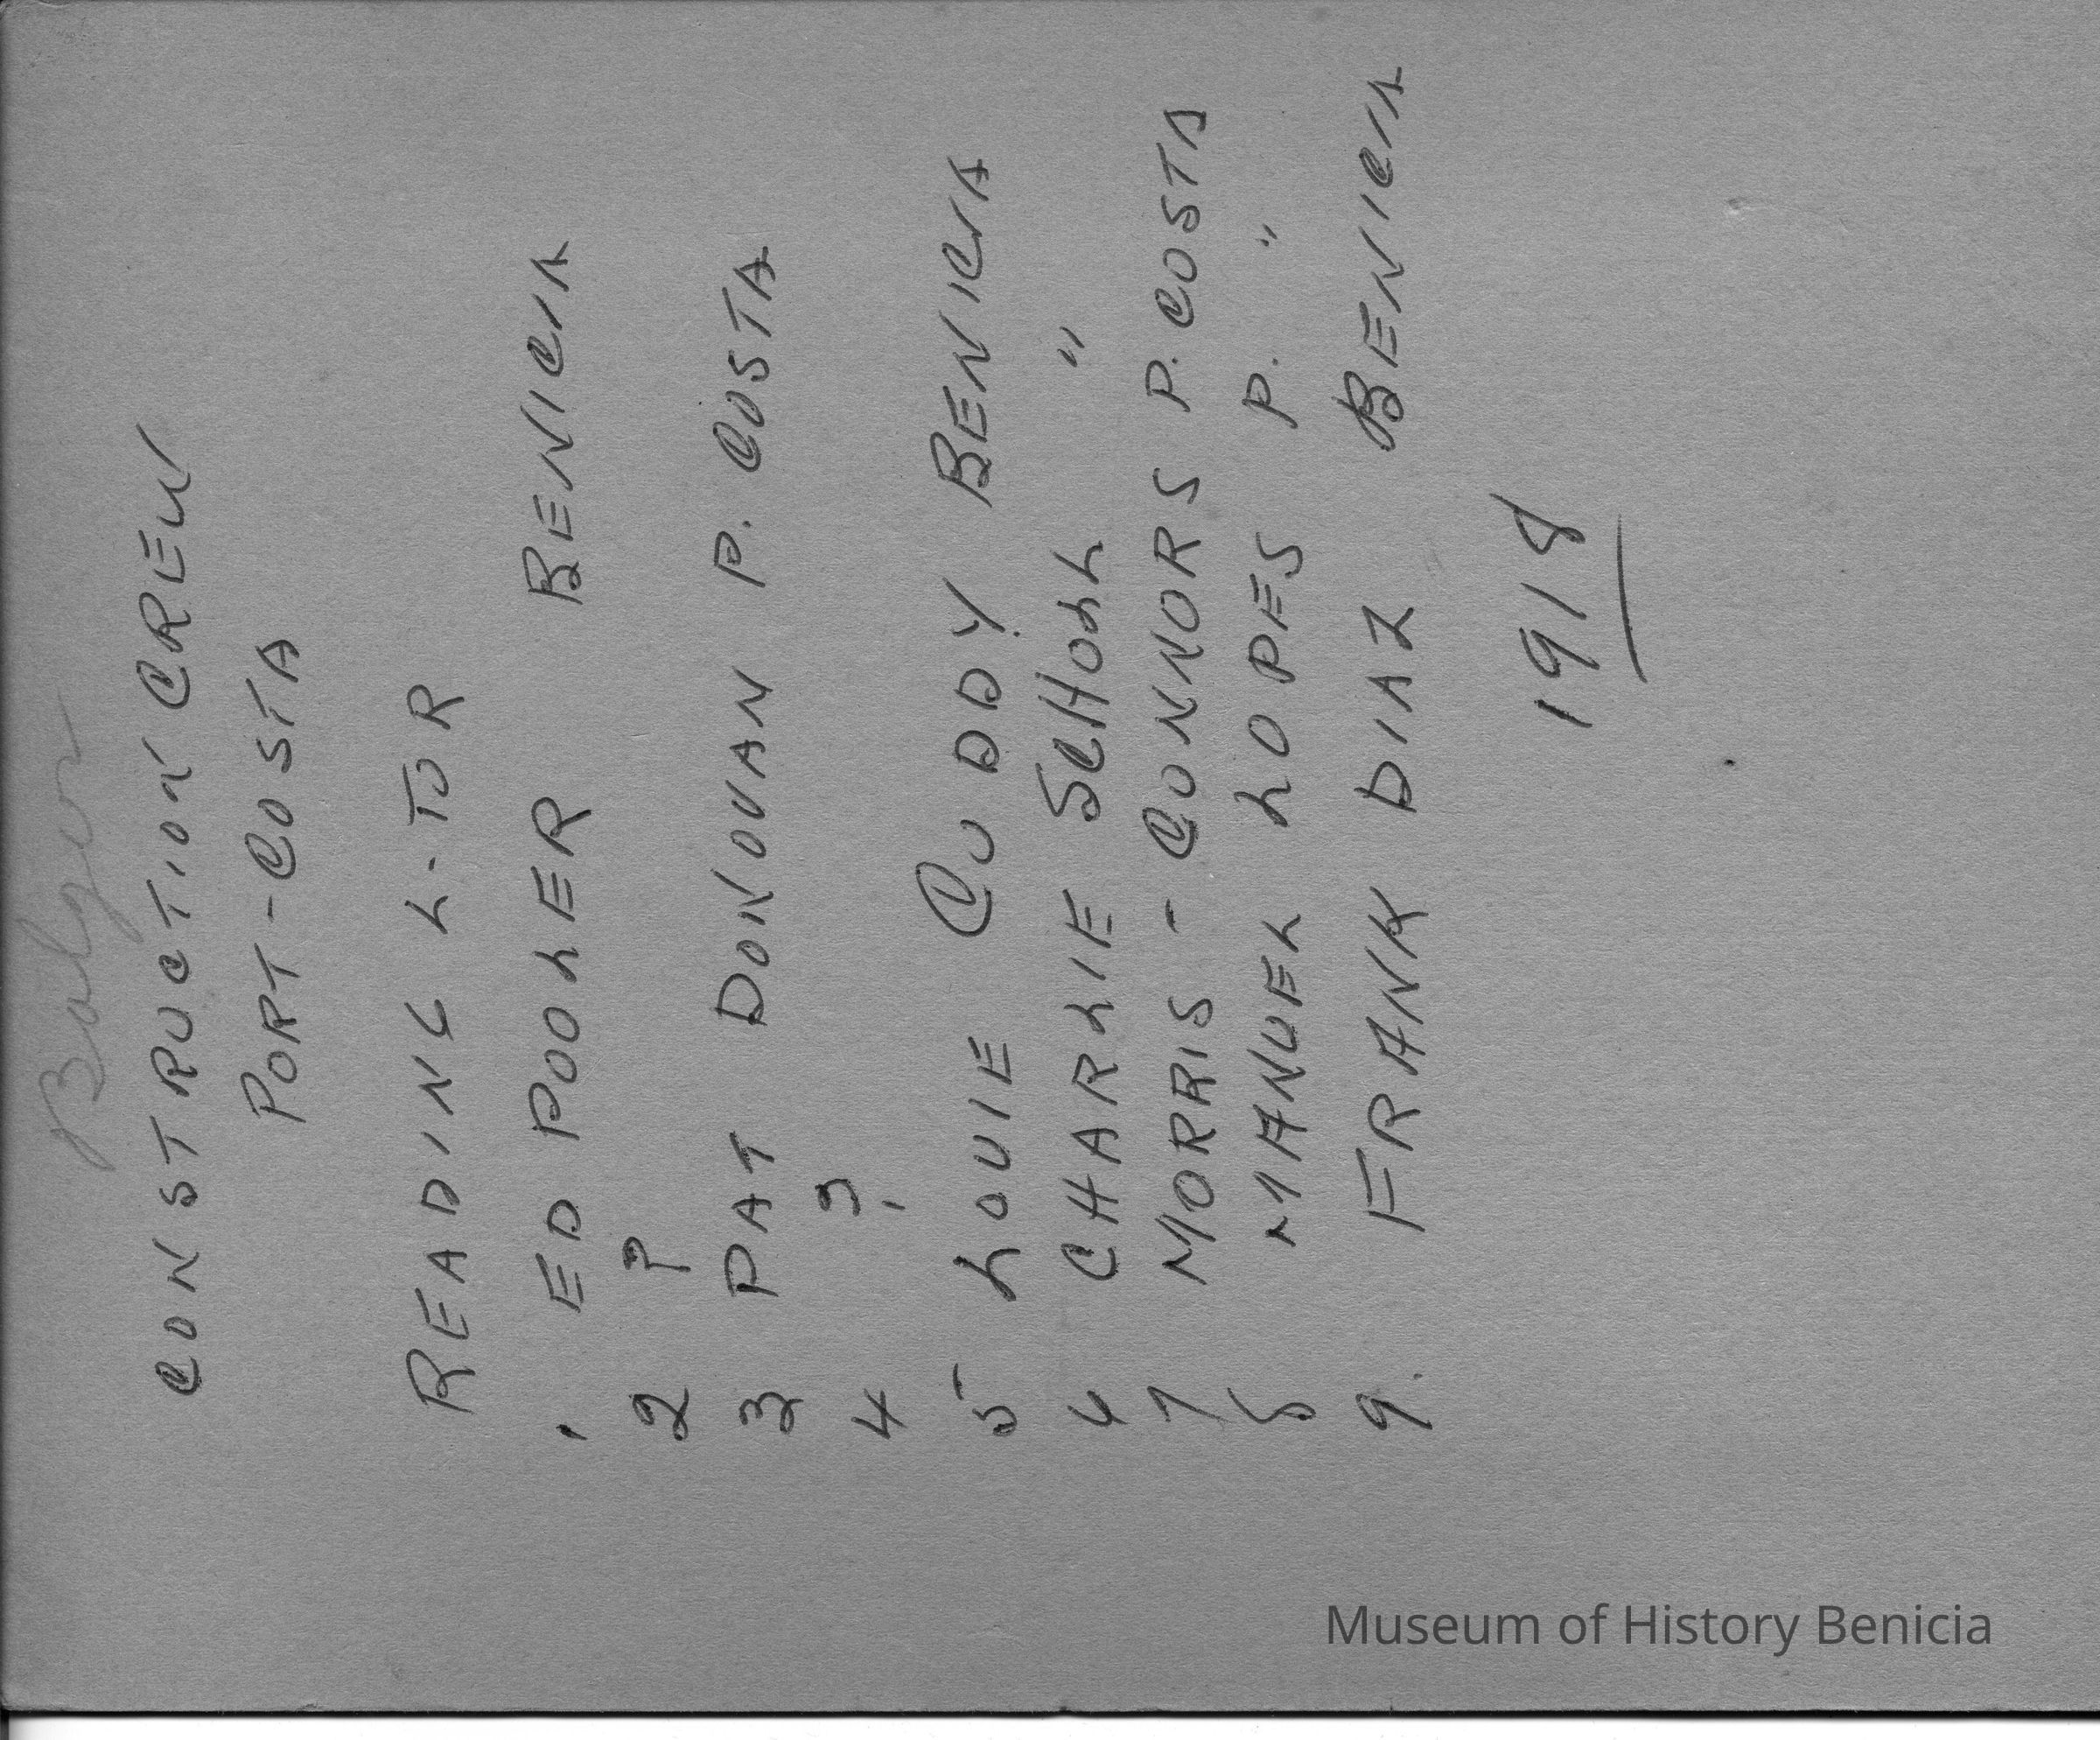 CONSTRUCTION CREW
PORT-COSTA
READING L-TOR
1 ED POOLER BENICIA
2 ?
3 PAT DONOVAN P. COSTA
4 ?
5 LOUIE CUDDY BENICIA
6 CHARLIE SCHOLL "
7 MORRIS - CONNORS P. COSTA
8 MANUEL LOPES P. "
9. FRANK DIAZ BENICIA
1918
Museum of History Benicia